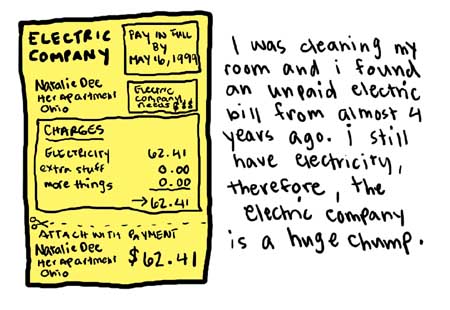 ELECTRIC
COMPANY
PAY IN FULL
BY
MAY 16, 1999
Natalie Dee
Her Apartment
Ohio
Electric
company
needs $$$
CHARGES
ELECTRICITY 62.41
extra stuff 0.00
more things 0.00
→ 62.41
ATTACH WITH PAYMENT
Natalie Dee
Her Apartment
Ohio
$62.41
I was cleaning my
room and i found
an unpaid electric
bill from almost 4
years ago. i still
have electricity,
therefore, the
electric company
is a huge chump.